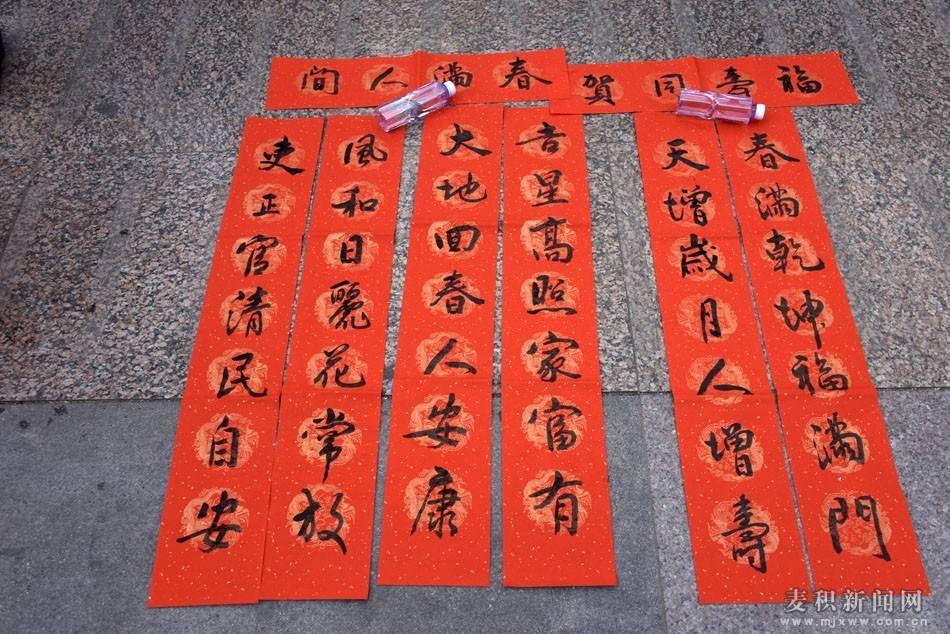 福壽同賀
春滿人間
春滿乾坤福滿門
天增歲月人增壽
吉星高照家富有
大地回春人安康
風和日麗花常放
吏正官清民自安
麦积新闻网
www.mjxww.com.cn